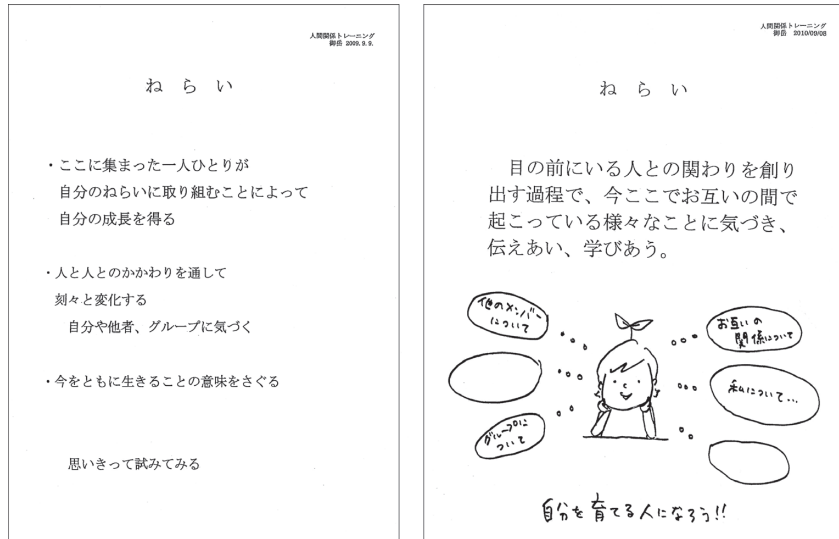 人間関係トレーニング
御岳 2009.9.9.
ねらい
・ここに集まった一人ひとりが
自分のねらいに取り組むことによって
自分の成長を得る
・人と人とのかかわりを通して
刻々と変化する
自分や他者、グループに気づく
・今をともに生きることの意味をさぐる
思いきって試みてみる
人間関係トレーニング
御岳 2010/09/08
ねらい
目の前にいる人との関わりを創り
出す過程で、今ここでお互いの間で
起こっている様々なことに気づき、
伝えあい、学びあう。
他のメンバー
について
お互いの
関係について
私について…
グループに
ついて
自分を育てる人になろう!!